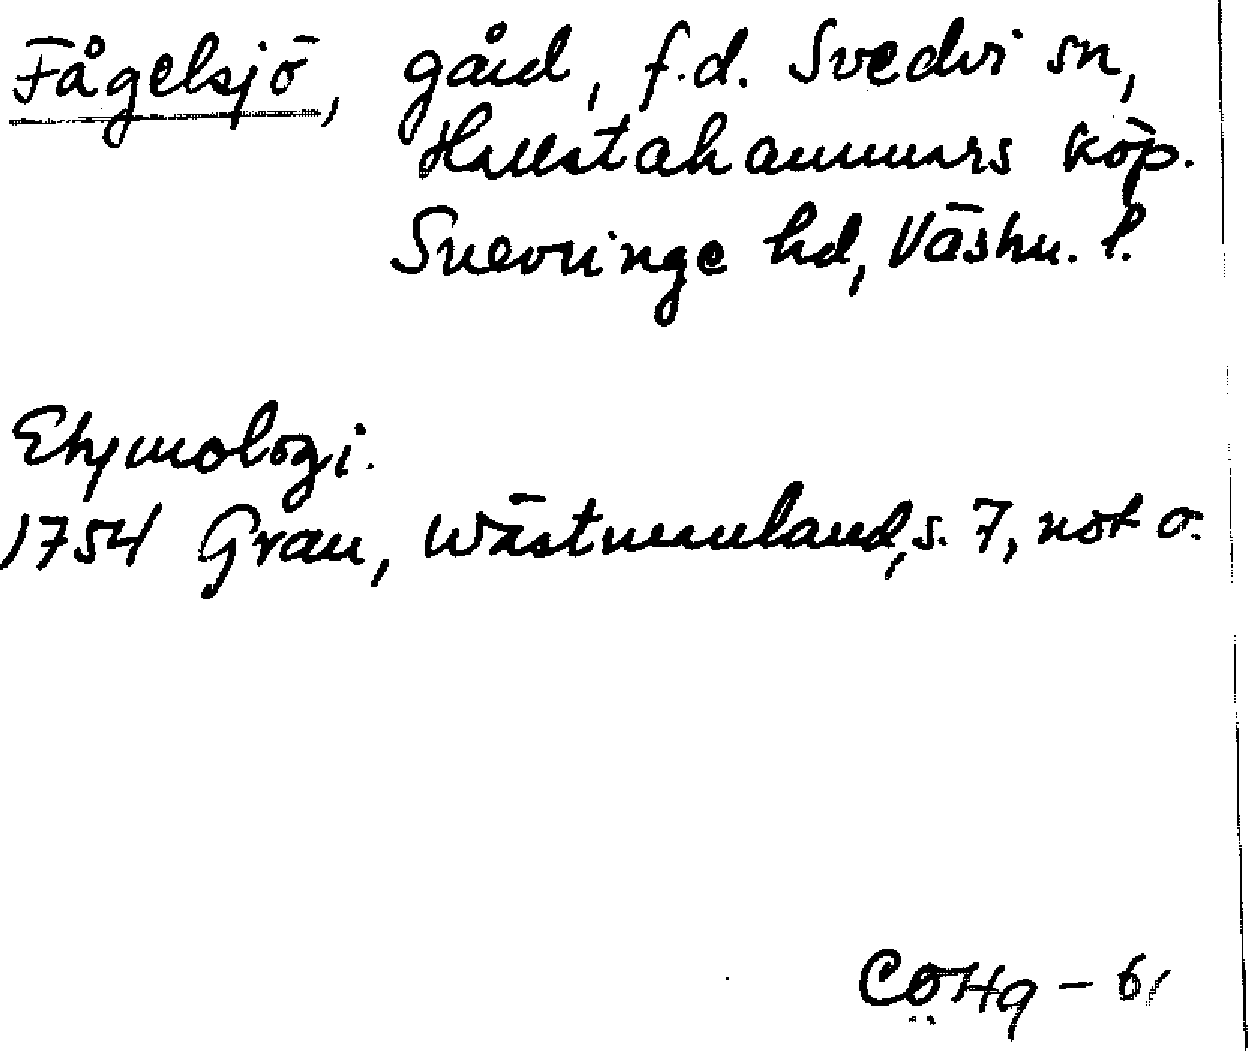 Fågelsjö, gård, f.d. Svedvi sn,
Hallstahammars köp.
Snevringe hd, Västm. l.
Etymologi.
1754 Grau, Wästmanland, s. 7, not o.
CÖHg - 61